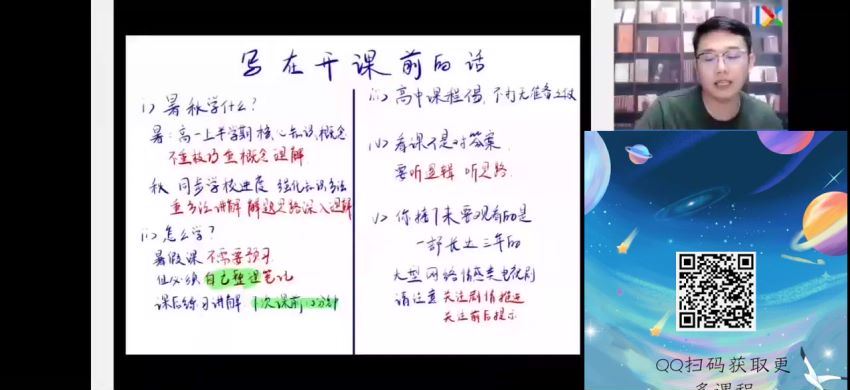 写在开课前的话
i) 暑秋学什么?
暑:高一上半学期核心知识概念
不重技巧重概念理解
秋 同步学校进度 强化知识方法
重方法讲解 解题思路深入理解
ii) 怎么学?
暑假课 不需要预习
但必须 自己整理笔记
课后练习讲解 下次课前,20分钟
iii) 高中课程倍,不打无准备之仗
iv) 看课不是对答案
要听逻辑 听思路
v) 你接下来要观看的是
一部长达三年的
大型网络情感类电视剧
请注意 关注剧情推进
关注前后提示
QQ扫码获取更
多课程